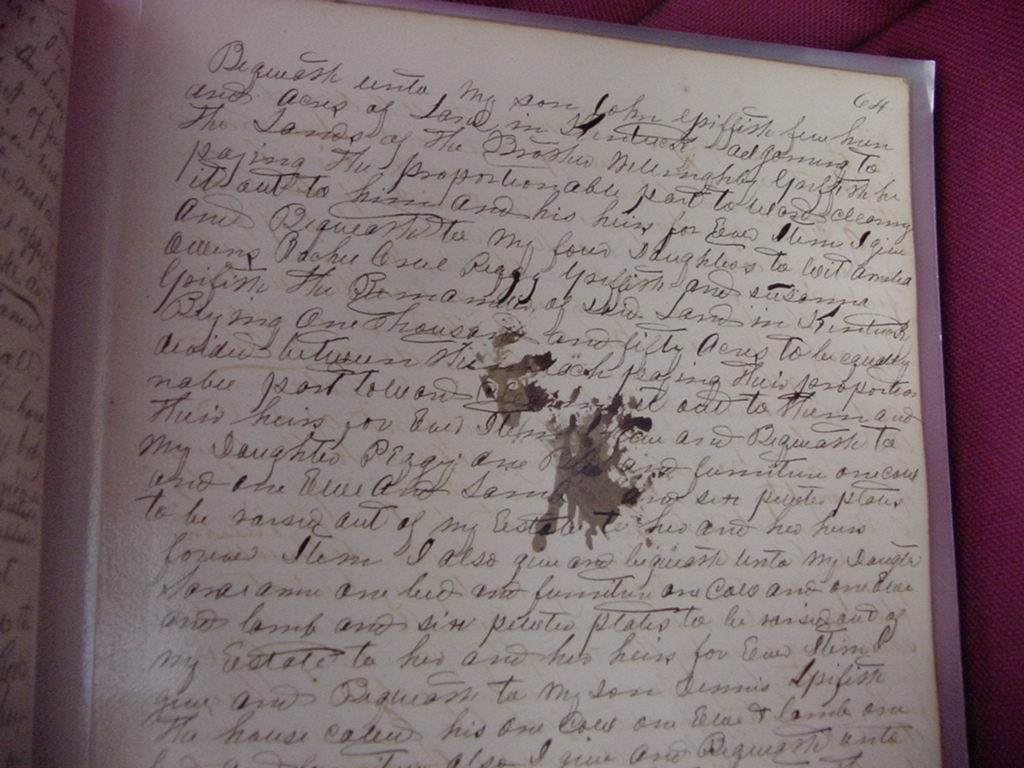 64
Bequeath unto My son John Griffith five hun
and acres of Land in Kentucky adjoining to
The Lands of the Brother Willeughby Griffith he
paying The proportionable part toward clearing
it out to him and his heirs for Ever Item I give
and Bequeath to My four Daughters to wit
Owens Peggy Griffith and Susanna
Griffith The Remainder of said Land in Kentucky
Being One Thousand and fifty Acres to be equally
devided between them Each paying their proportio
nable part toward it out to Them and
Their heirs for Ever Item I give and Bequeath to
My Daughter Peggy one Bed and furniture one cow
and one Ewe and Lamb and six pewter plates
to be raised out of my Estate to her and her heirs
forever Item I also give and bequeath unto My Daughter
one bed and furniture one Cow and one Ewe
and lamb and six pewter plates to be raised out of
my Estate to her and her heirs for Ever Item I
give and Bequeath to My son Dennis Griffith
The horse called his one Cow one Ewe & lamb one
also I give and Bequeath unto